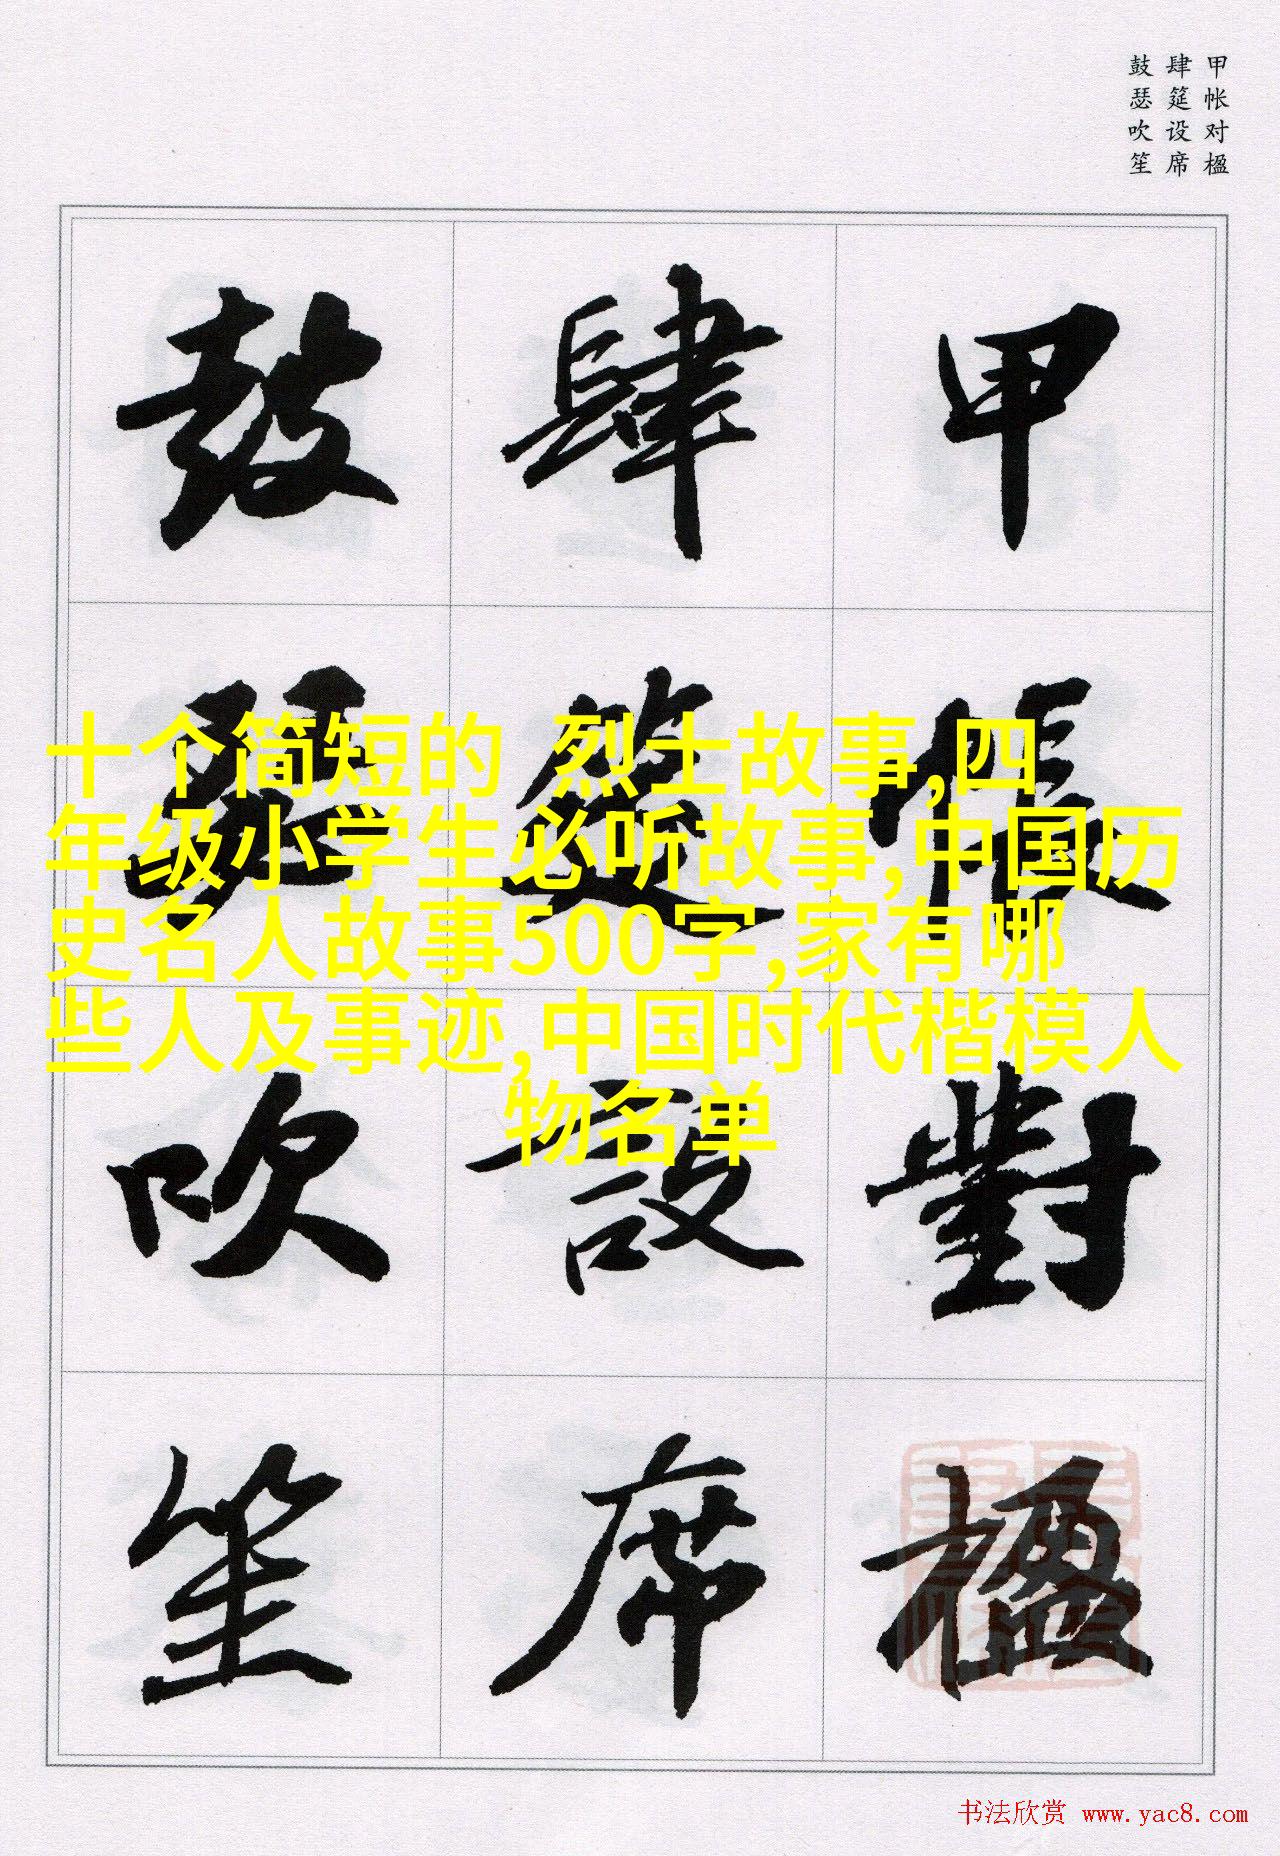 甲帐对楹
肆筵设席
鼓瑟吹笙
甲帳對楹
肆筵設席
鼓瑟吹笙
十个简短的 烈士故事,四
年级小学生必听故事,中国历
史名人故事500字,家有哪
些人及事迹,中国时代楷模人
物名单
书法欣赏 www.yac8.com